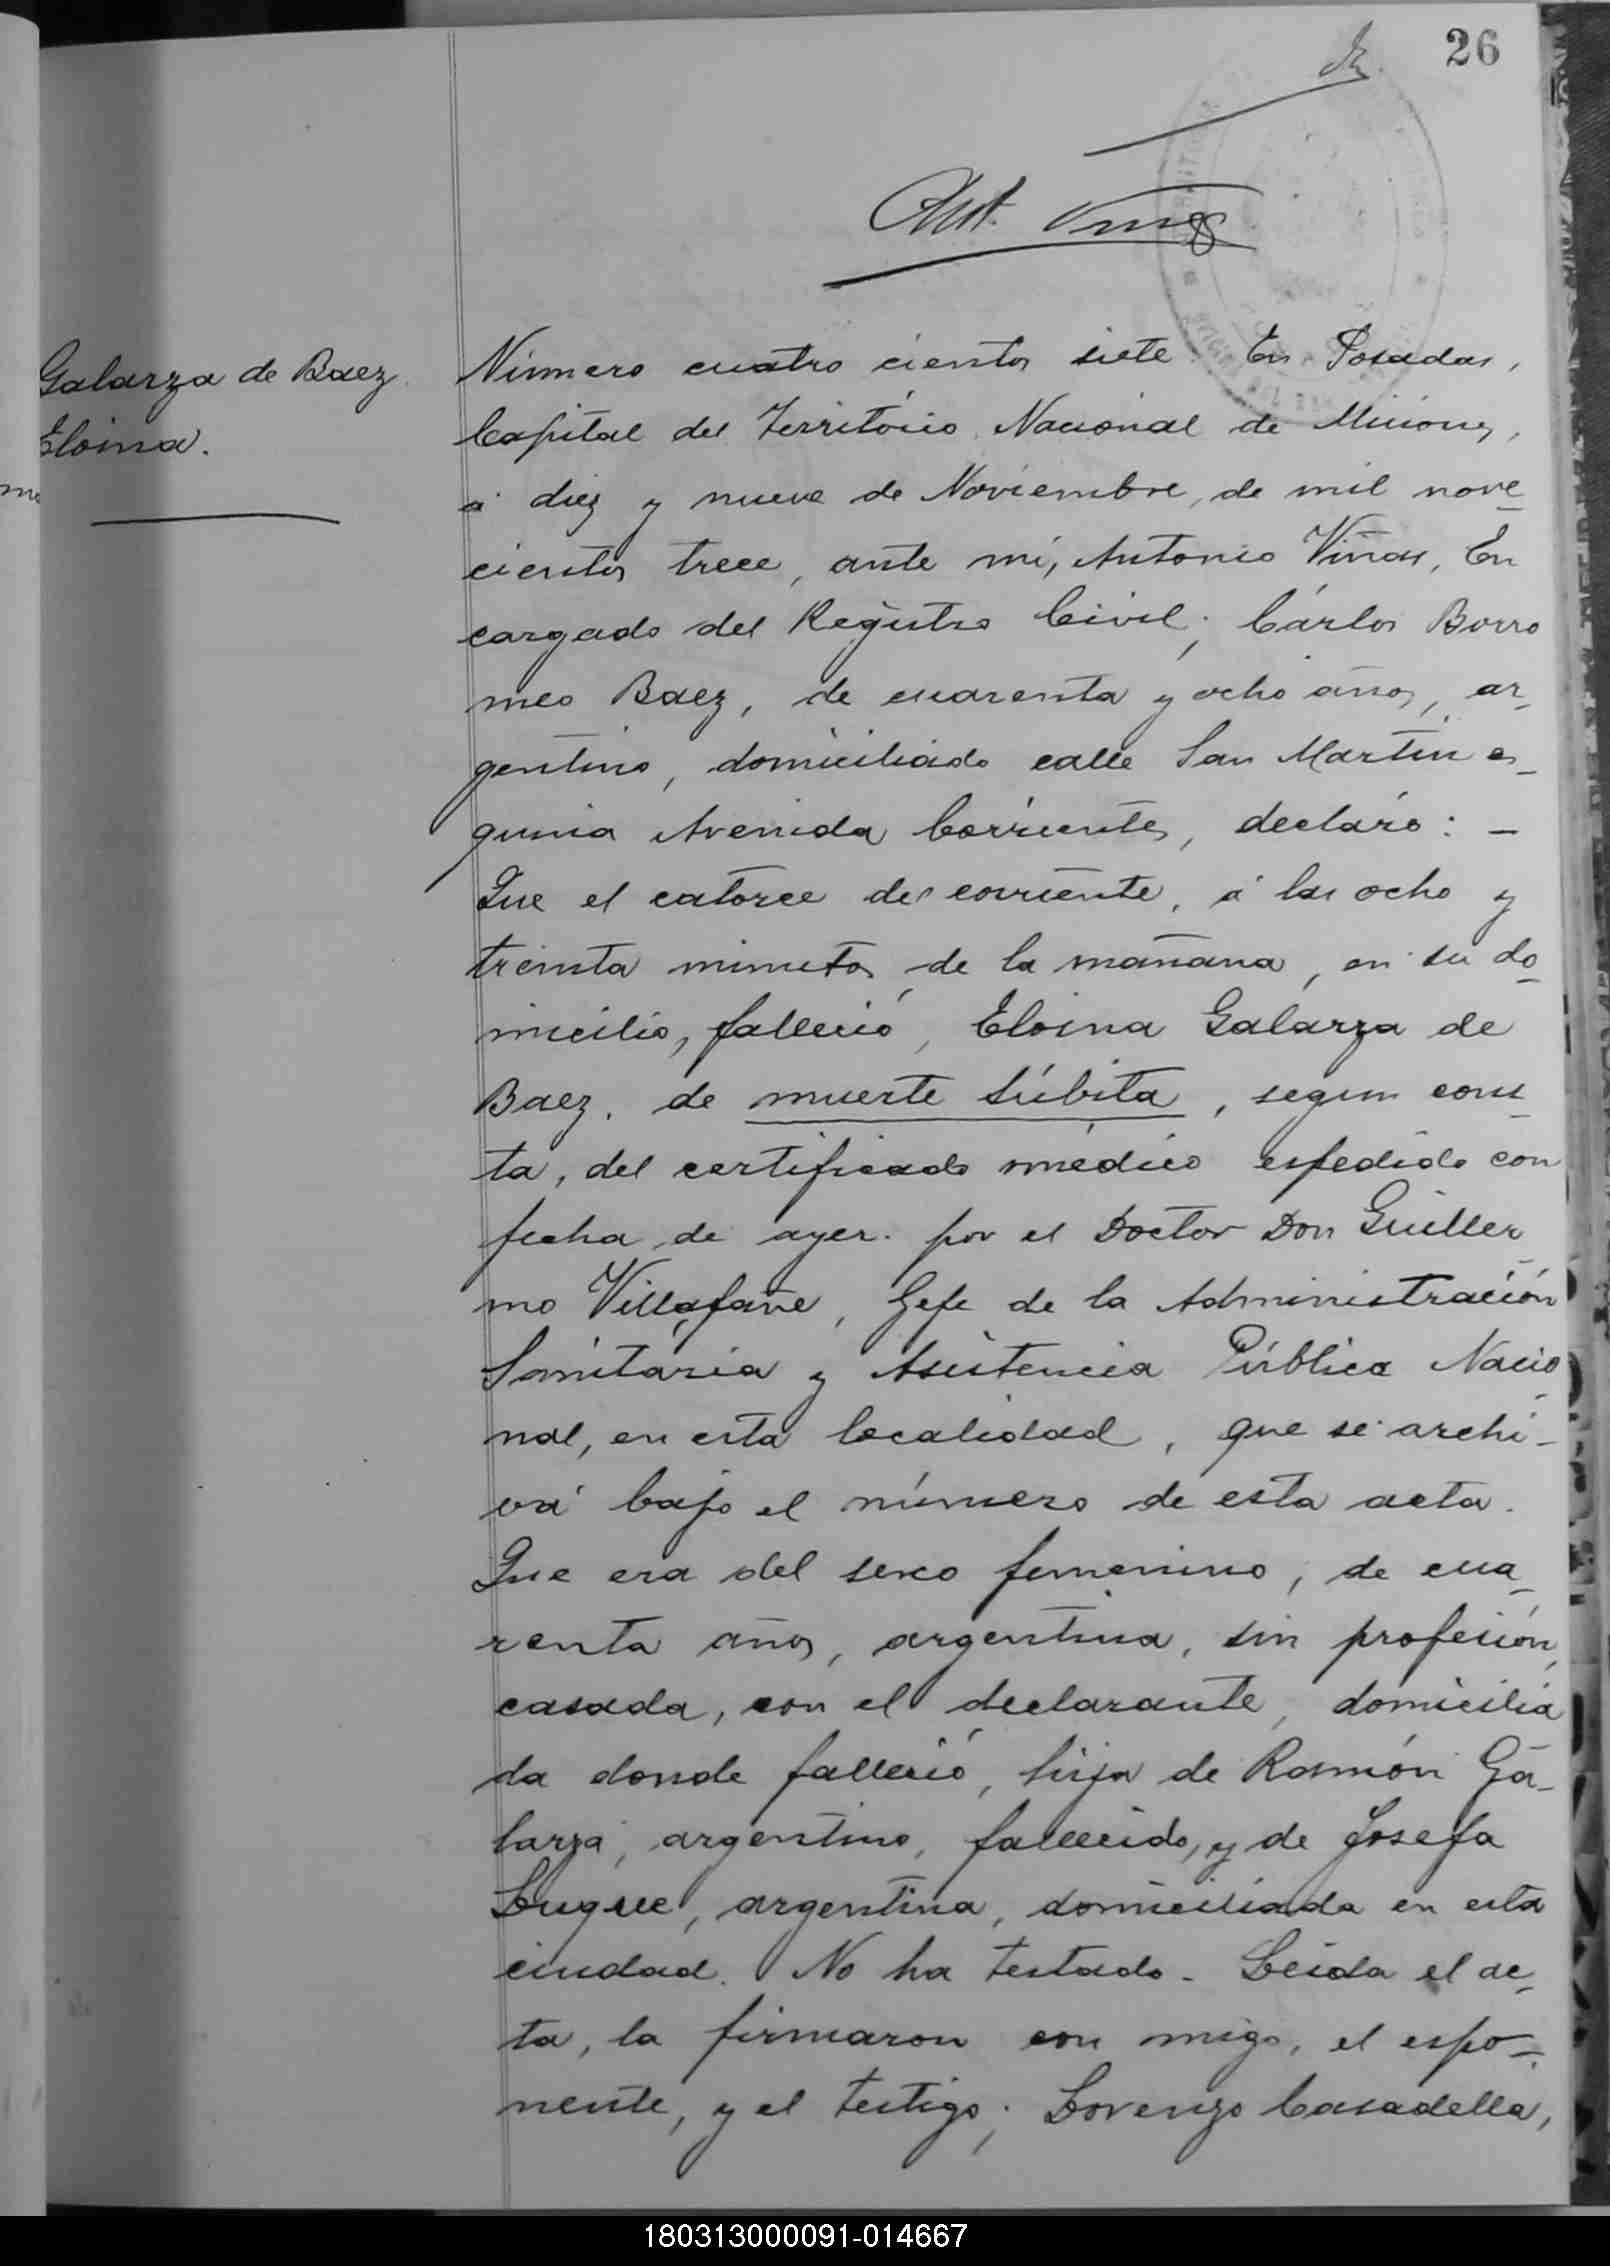 26
Ant. Viñas
Galarza de Baez
Eloina.
Número cuatro cientos siete. En Posadas,
Capital del Território Nacional de Misiones,
á diez y nueve de Noviembre, de mil nove-
cientos trece, ante mi, Antonio Viñas, En
cargado del Registro Civil; Cárlos Borro
meo Baez, de cuarenta y ocho años, ar-
gentino, domiciliado calle San Martín es-
quina Avenida Corrientes, declaró: -
Que el catorce del corriente, á las ocho y
treinta minutos de la mañana, en su do-
micilio, falleció, Eloina Galarza de
Baez, de muerte súbita, segun cons-
ta, del certificado médico espedido con
fecha de ayer. por el Doctor Don Guiller
mo Villafañe, Gefe de la Administración
Sanitaria y Asistencia Pública Nacio-
nal, en esta localidad, que se archi-
va bajo el número de esta acta.
Que era del sexo femenino, de cua-
renta años, argentina, sin profesión,
casada, con el declarante, domicilia
da donde falleció, hija de Ramón Ga-
larza, argentino, fallecido, y de Josefa
Luque, argentina, domiciliada en esta
ciudad. No ha testado. Leida el ac-
ta, la firmaron con migo, el espo-
nente, y el testigo; Lorenzo Casadella,
180313000091-014667